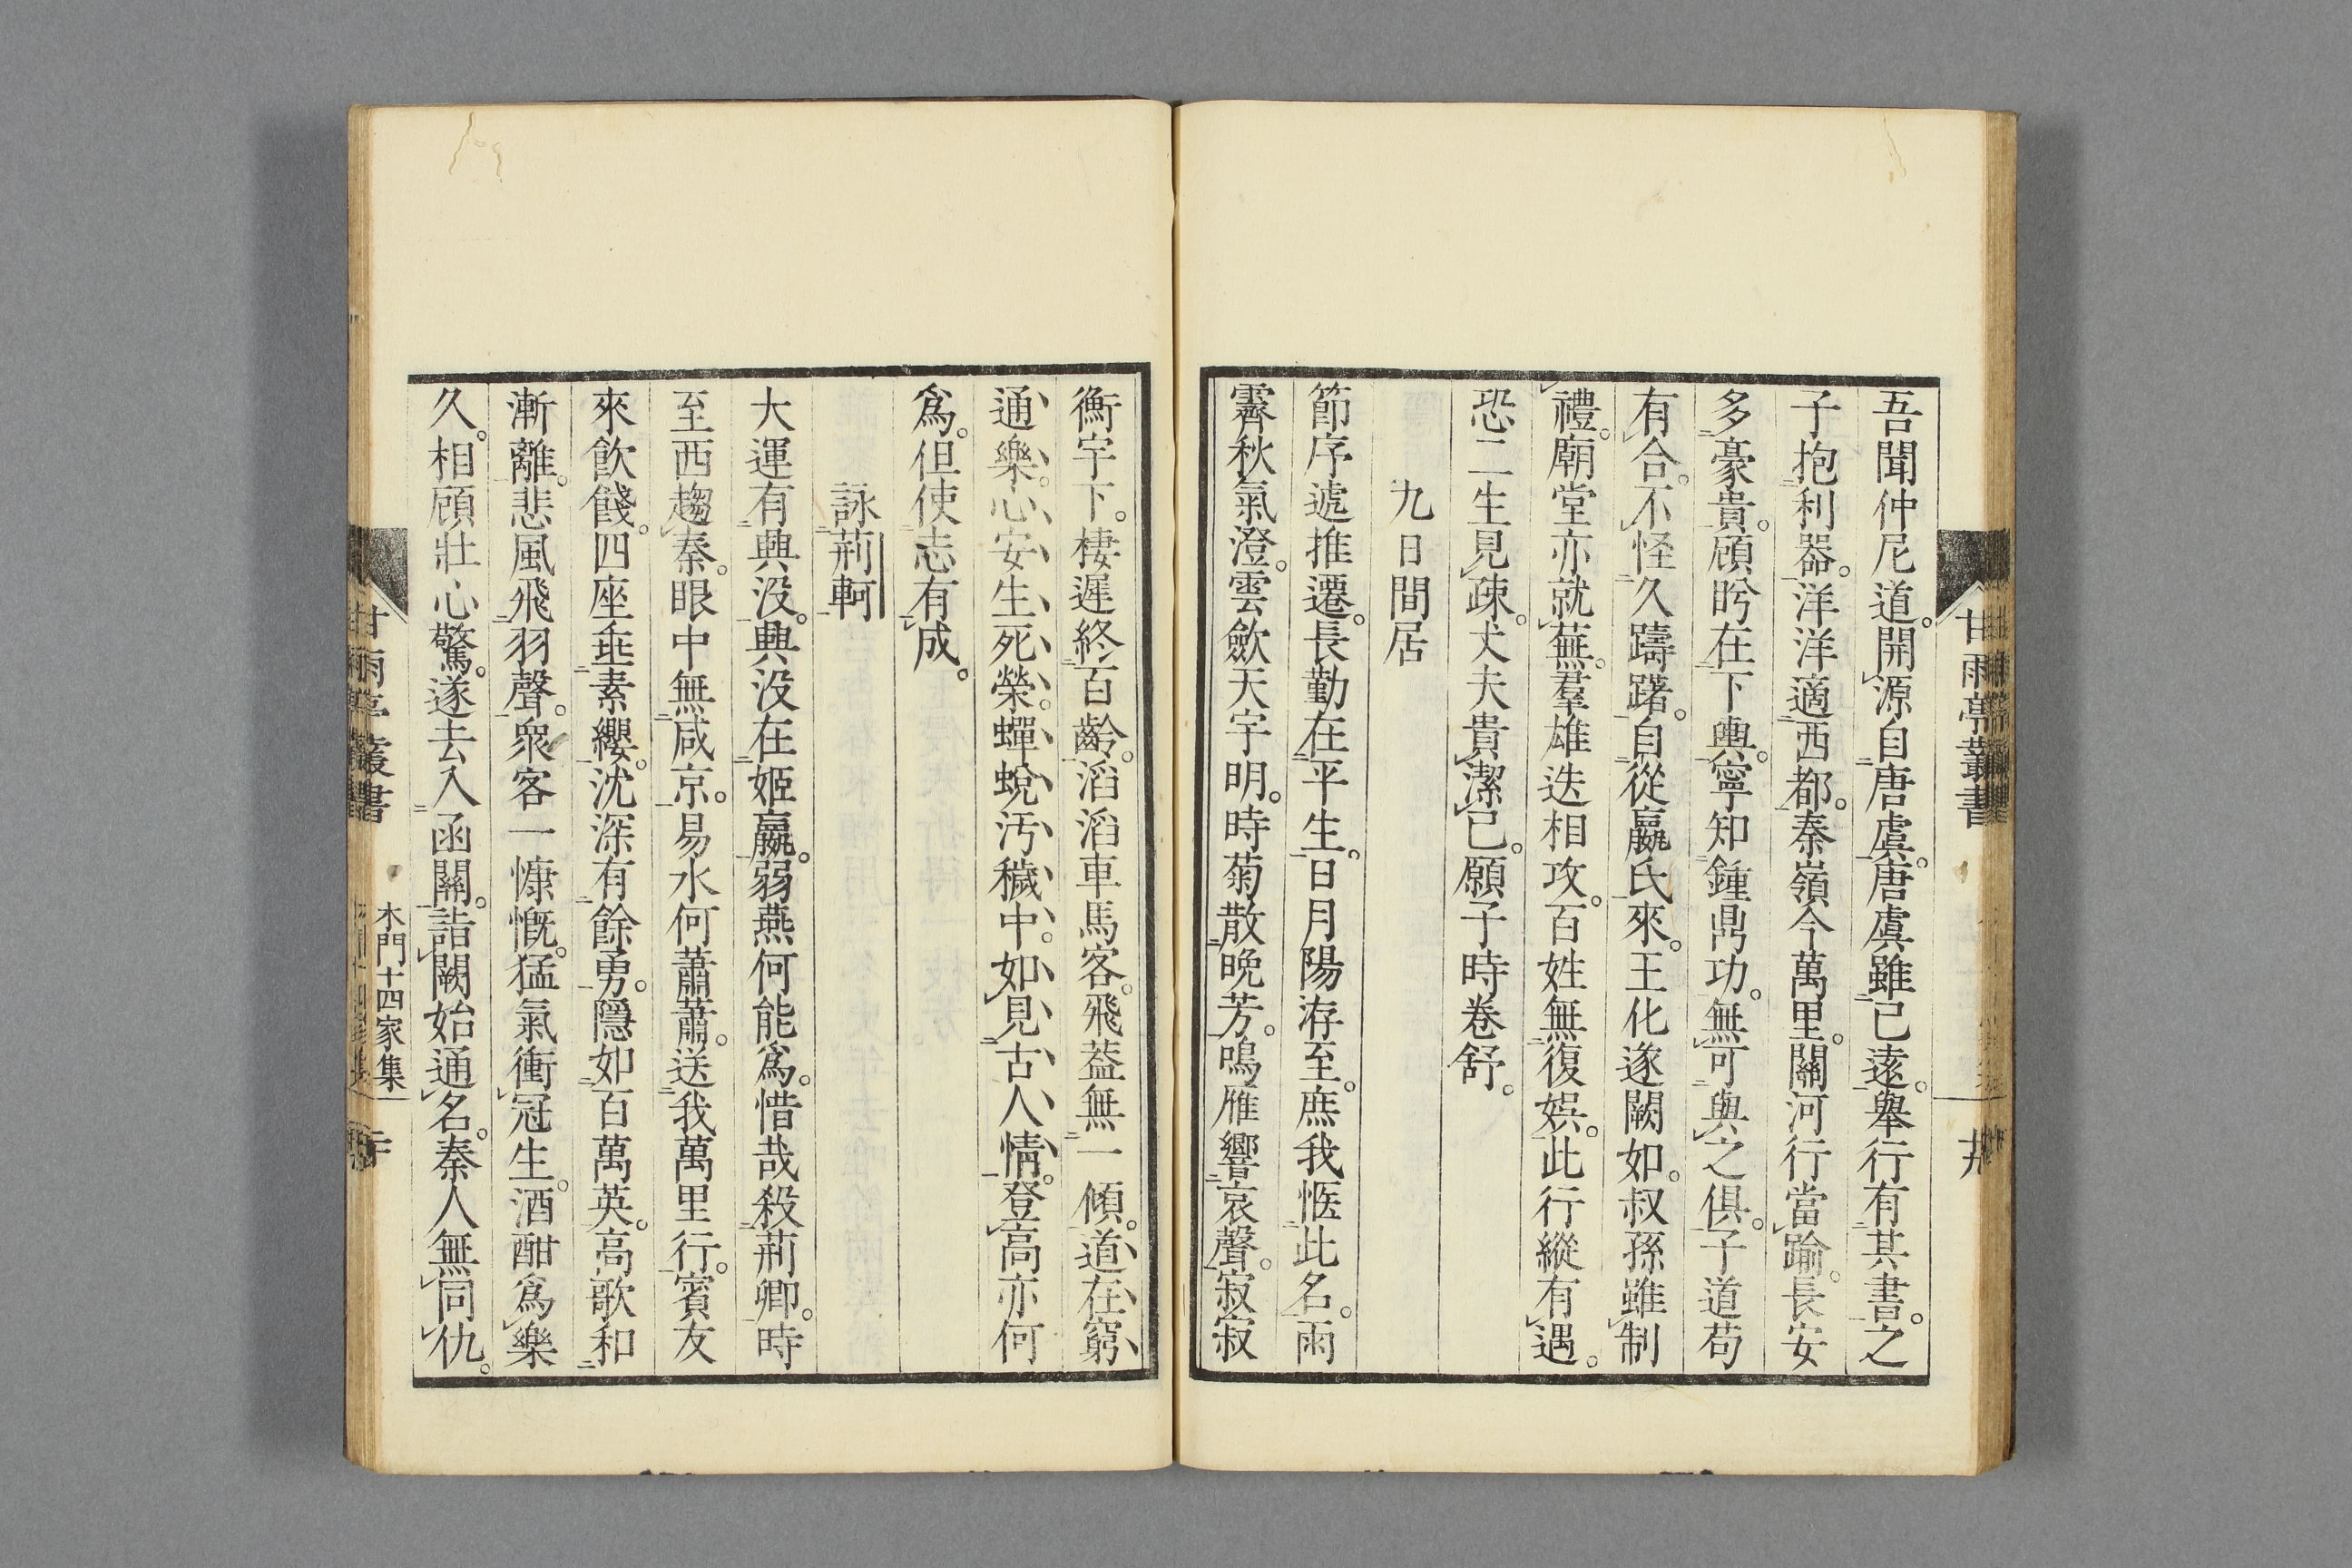 吾聞仲尼道。開源自唐虞。唐虞雖已遠。舉行有其書。之
子抱利器。洋洋適西都。秦嶺今萬里。關河行當踰。長安
多豪貴。顧眄在下輿。寧知鍾鼎功。無可與之俱。子道苟
有合。不怪久躊躇。自從嬴氏來。王化遂闕如。叔孫雖制
禮。廟堂亦就蕪。羣雄迭相攻。百姓無復娯。此行縱有遇。
恐二生見疎。丈夫貴潔己。願子時卷舒。
九日間居
節序遞推遷。長勤在平生。日月陽洊至。庶我愜此名。雨
霽秋氣澄。雲斂天宇明。時菊散晚芳。鳴雁響哀聲。寂寂
衡宇下。棲遲終百齡。滔滔車馬客。飛蓋無一傾。道在窮
通樂。心安生死榮。蟬蛻汚穢中。如見古人情。登高亦何
爲。但使志有成。
詠荊軻
大運有興沒。興沒在姬嬴。弱燕何能爲。惜哉殺荊卿。時
至西趨秦。眼中無咸京。易水何蕭蕭。送我萬里行。賓友
來飮餞。四座垂素纓。沈深有餘勇。隱如百萬英。高歌和
漸離。悲風飛羽聲。衆客一慷慨。猛氣衝冠生。酒酣爲樂
久。相顧壯心驚。遂去入函關。詣闕始通名。秦人無同仇。
甘雨亭叢書
甘雨亭叢書 木門十四家集 二十